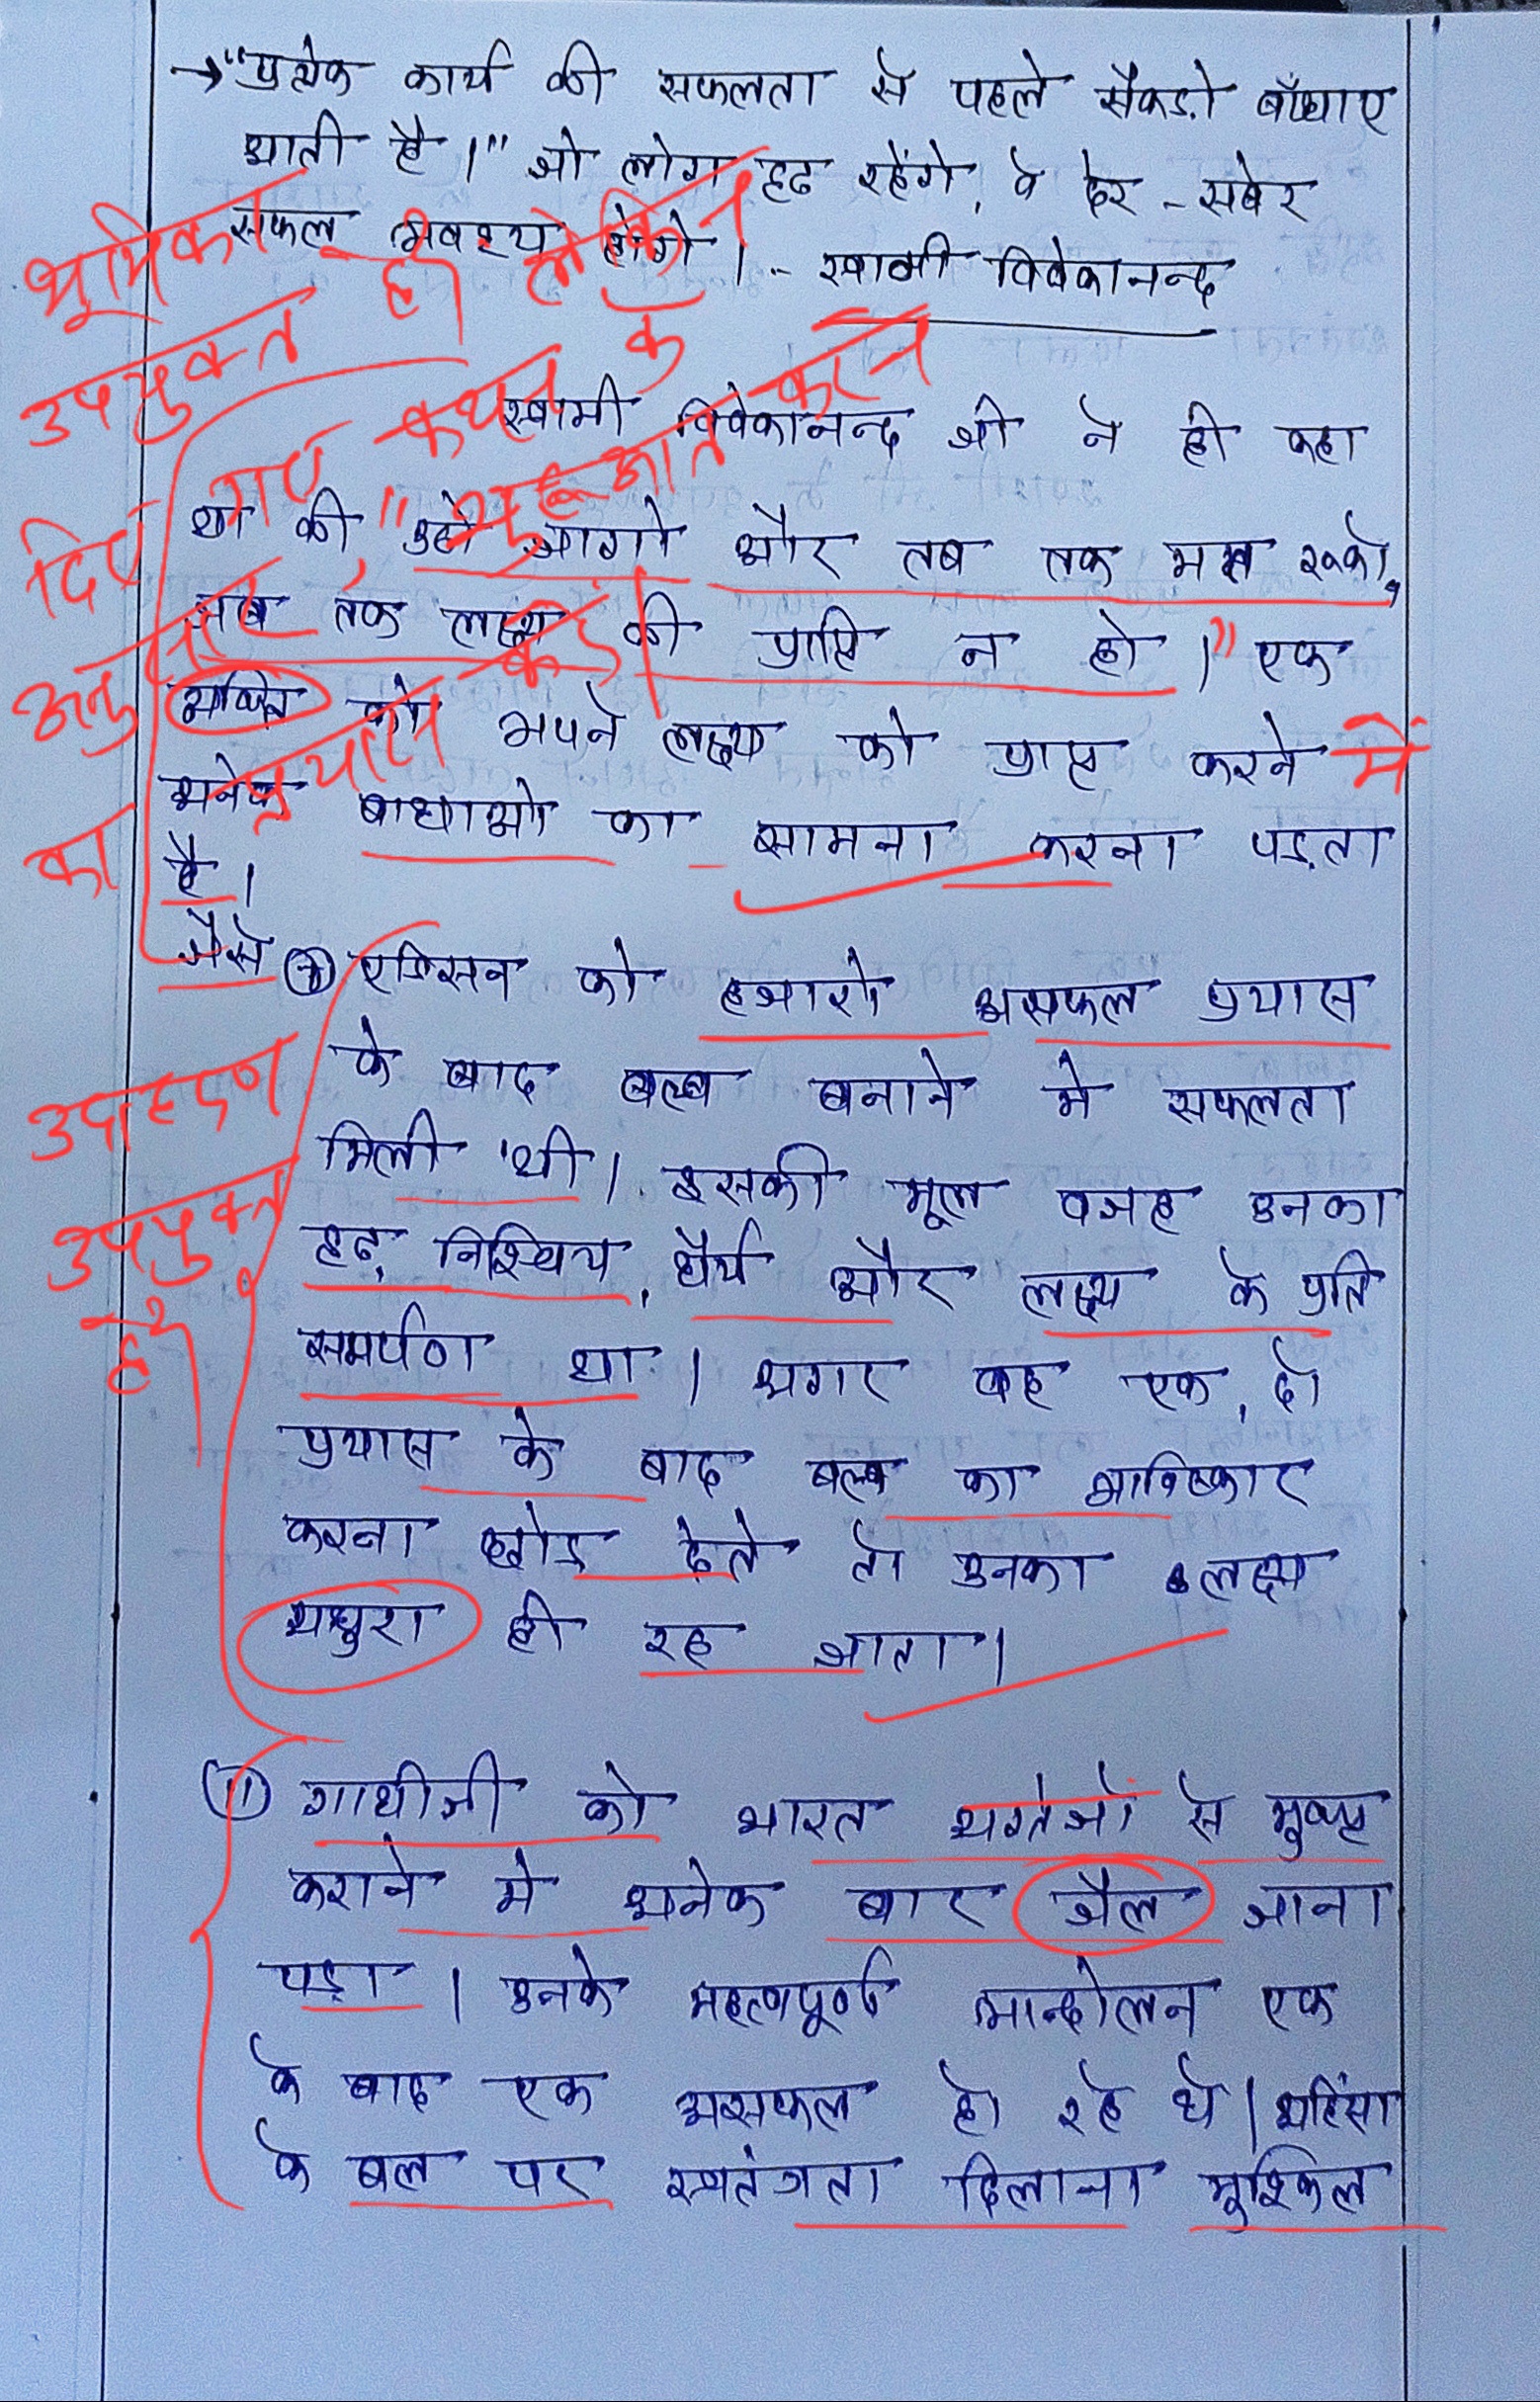 → "प्रत्येक कार्य की सफलता से पहले सैकड़ो बाँधाए
आती है।" जो लोग द्दढ रहेंगे, वे देर - सबेर
सफल अवश्य होंगे। - स्वामी विवेकानन्द
भूमिका
उपयुक्त है। लेकिन
दिए गए कथन के
अनुसार शुरूआत करने
का प्रयास करें।
स्वामी विवेकानन्द जी ने ही कहा
था की "उठो जागो और तब तक मत रूको,
जब तक लक्ष्य की प्राप्ति न हो।" एक
को अपने लक्ष्य को प्राप्त करने में
अनेक बाधाओ का सामना करना पड़ता
है।
जैसे ① एडिसन को हजारो असफल प्रयास
के बाद बल्ब बनाने मे सफलता
मिली थी। इसकी मूल वजह उनका
द्दढ़ निश्चिय, धैर्य और लक्ष्य के प्रति
समर्पण था। अगर वह एक, दो
प्रयास के बाद बल्ब का आविष्कार
करना छोड देते तो उनका लक्ष्य
अधुरा ही रह जाता।
उदाहरण
उपयुक्त
है।
② गाधीजी को भारत अग्रेजों से मुक्त
कराने मे अनेक बार जैल जाना
पड़ा। उनके महत्वपूर्ण आन्दोलन एक
के बाद एक असफल हो रहे थे। अहिंसा
के बल पर स्वतंत्रता दिलाना मुश्किल